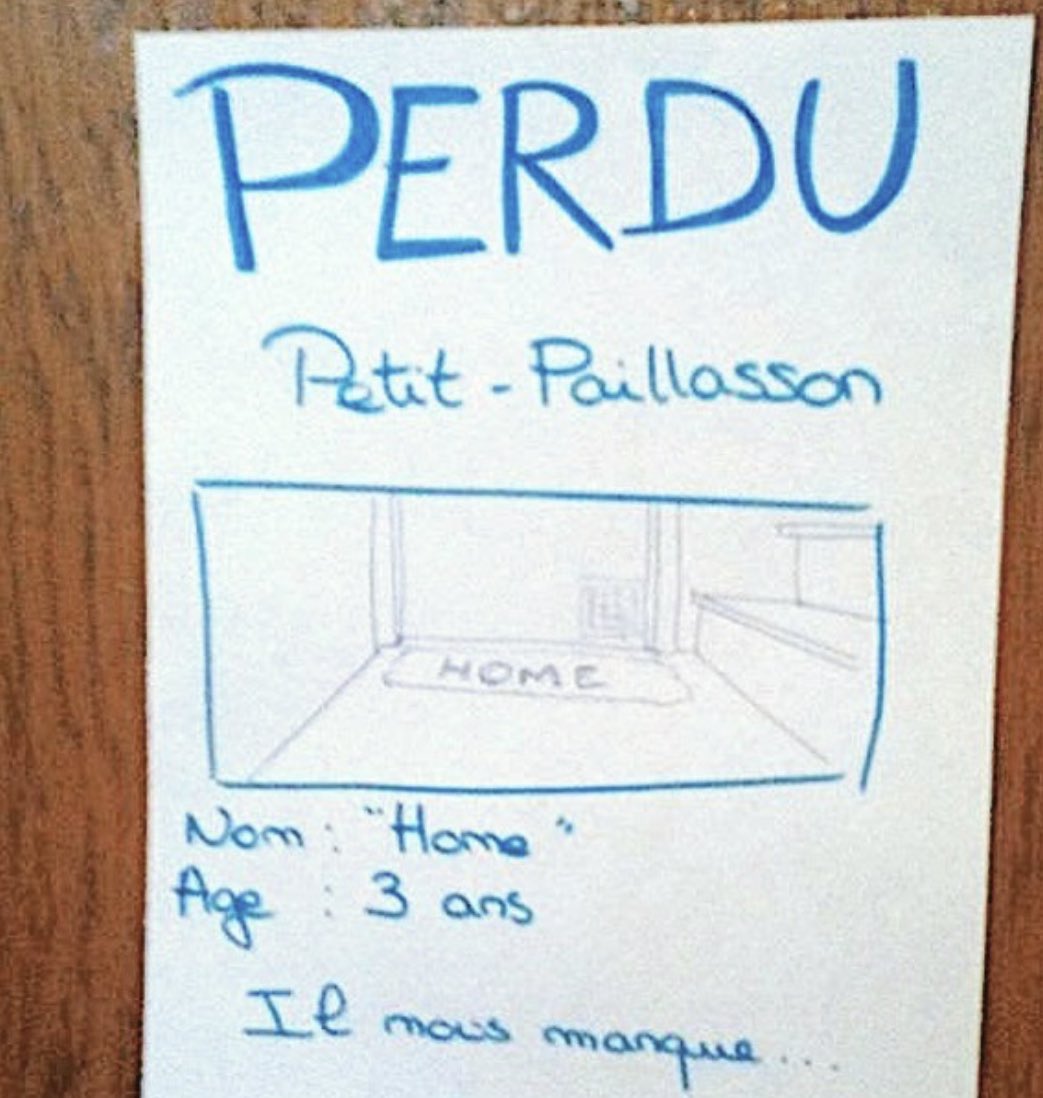 PERDU
Petit - Paillasson
HOME
Nom : "Home"
Age : 3 ans
Il nous manque...